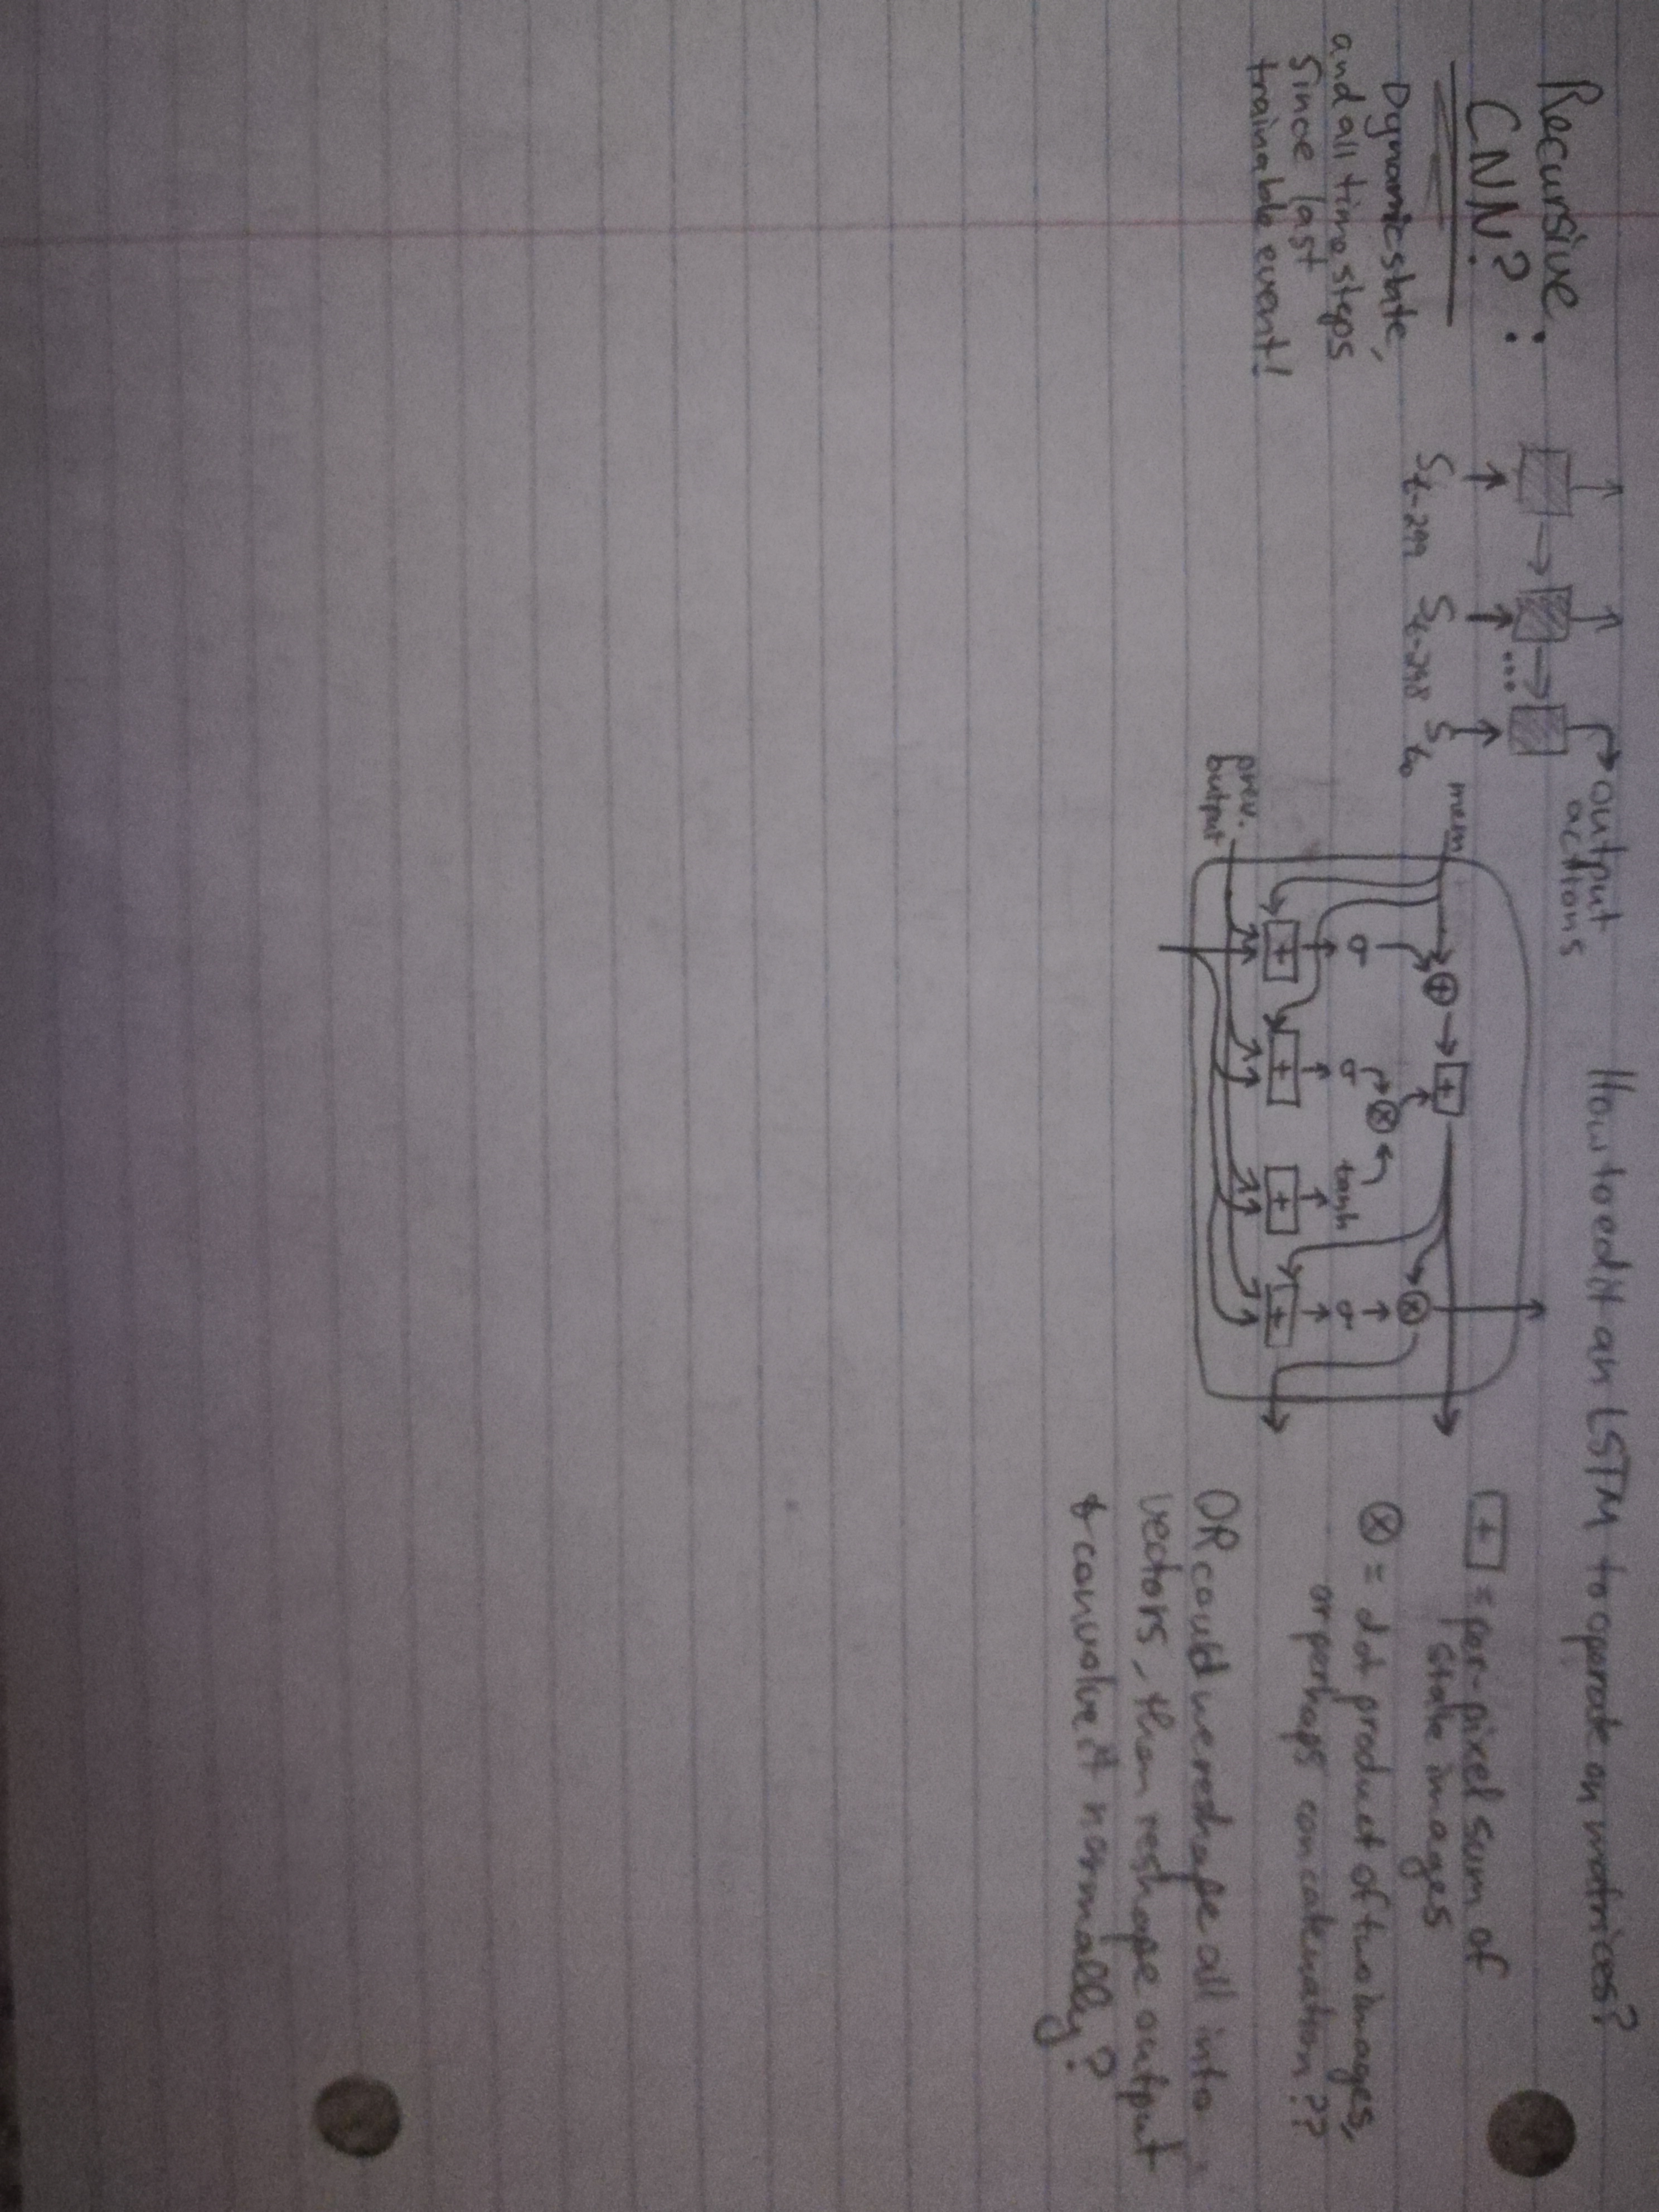 Recursive
CNN? :
Dynamic state,
and all time steps
since last
trainable event!
S t-299 S t-298 ... S t0
output
actions
How to edit an LSTM to operate on matrices?
mem
prev.
output
+ + + + +
σ σ tanh σ
+ ⊗ ⊗
+ = per-pixel sum of
state images
⊗ = dot product of two images,
or perhaps concatenation??
OR could we reshape all into
vectors, then reshape output
& convolve it normally?